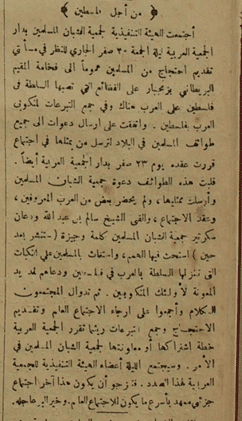 ﴿ من أجل فلسطين ﴾
اجتمعت الهيئة التنفيذية لجمعية الشبان المسلمين بدار
الجمعية العربية ليلة الجمعة ٣٠ صفر الجاري للنظر في مسألتي
تقديم احتجاج من المسلمين عموماً الى فخامة المقيم
البريطاني بزنجبار على الفظائع التي تصبها السلطة في
فلسطين على العرب هناك وفي جمع التبرعات لمنكوبي
العرب بفلسطين . واتفقت على ارسال دعوات الى جميع
طوائف المسلمين في البلاد لترسل من يمثلها في اجتماع
قررت عقده يوم ٢٣ صفر بدار الجمعية العربية أيضاً .
فلبت هذه الطوائف دعوة جمعية الشبان المسلمين
وأرسلت ممثليها، ولم يحضر بعض من العرب المعروفين،
وعقد الاجتماع، والقى الشيخ سالم بن عبد الله ودعان
سكرتير جمعية الشبان المسلمين كلمة وجيزة (ستنشر بعد
حين) استحث فيها الهمم، واستغاث بالمسلمين على النكبات
التي تنزلها السلطة بالعرب في فلسطين ودعاهم لمد يد
المعونة لأولئك المنكوبين . ثم تداول المجتمعون
الكلام وأجمعوا على ارجاء الاجتماع العام وتقديم
الاحتجاج وجمع التبرعات ريثما تقرر الجمعية العربية
خطة اشتراكها أو معاونتها لجمعية الشبان المسلمين في
الأمر . وسيجتمع الليلة أعضاء الهيئة التنفيذية للجمعية
العربية لهذا الصدد . فنرجو أن يكون هذا آخر اجتماع
جزئي ممهد بأسرع ما يكون للاجتماع العام . وخير البر عاجله .